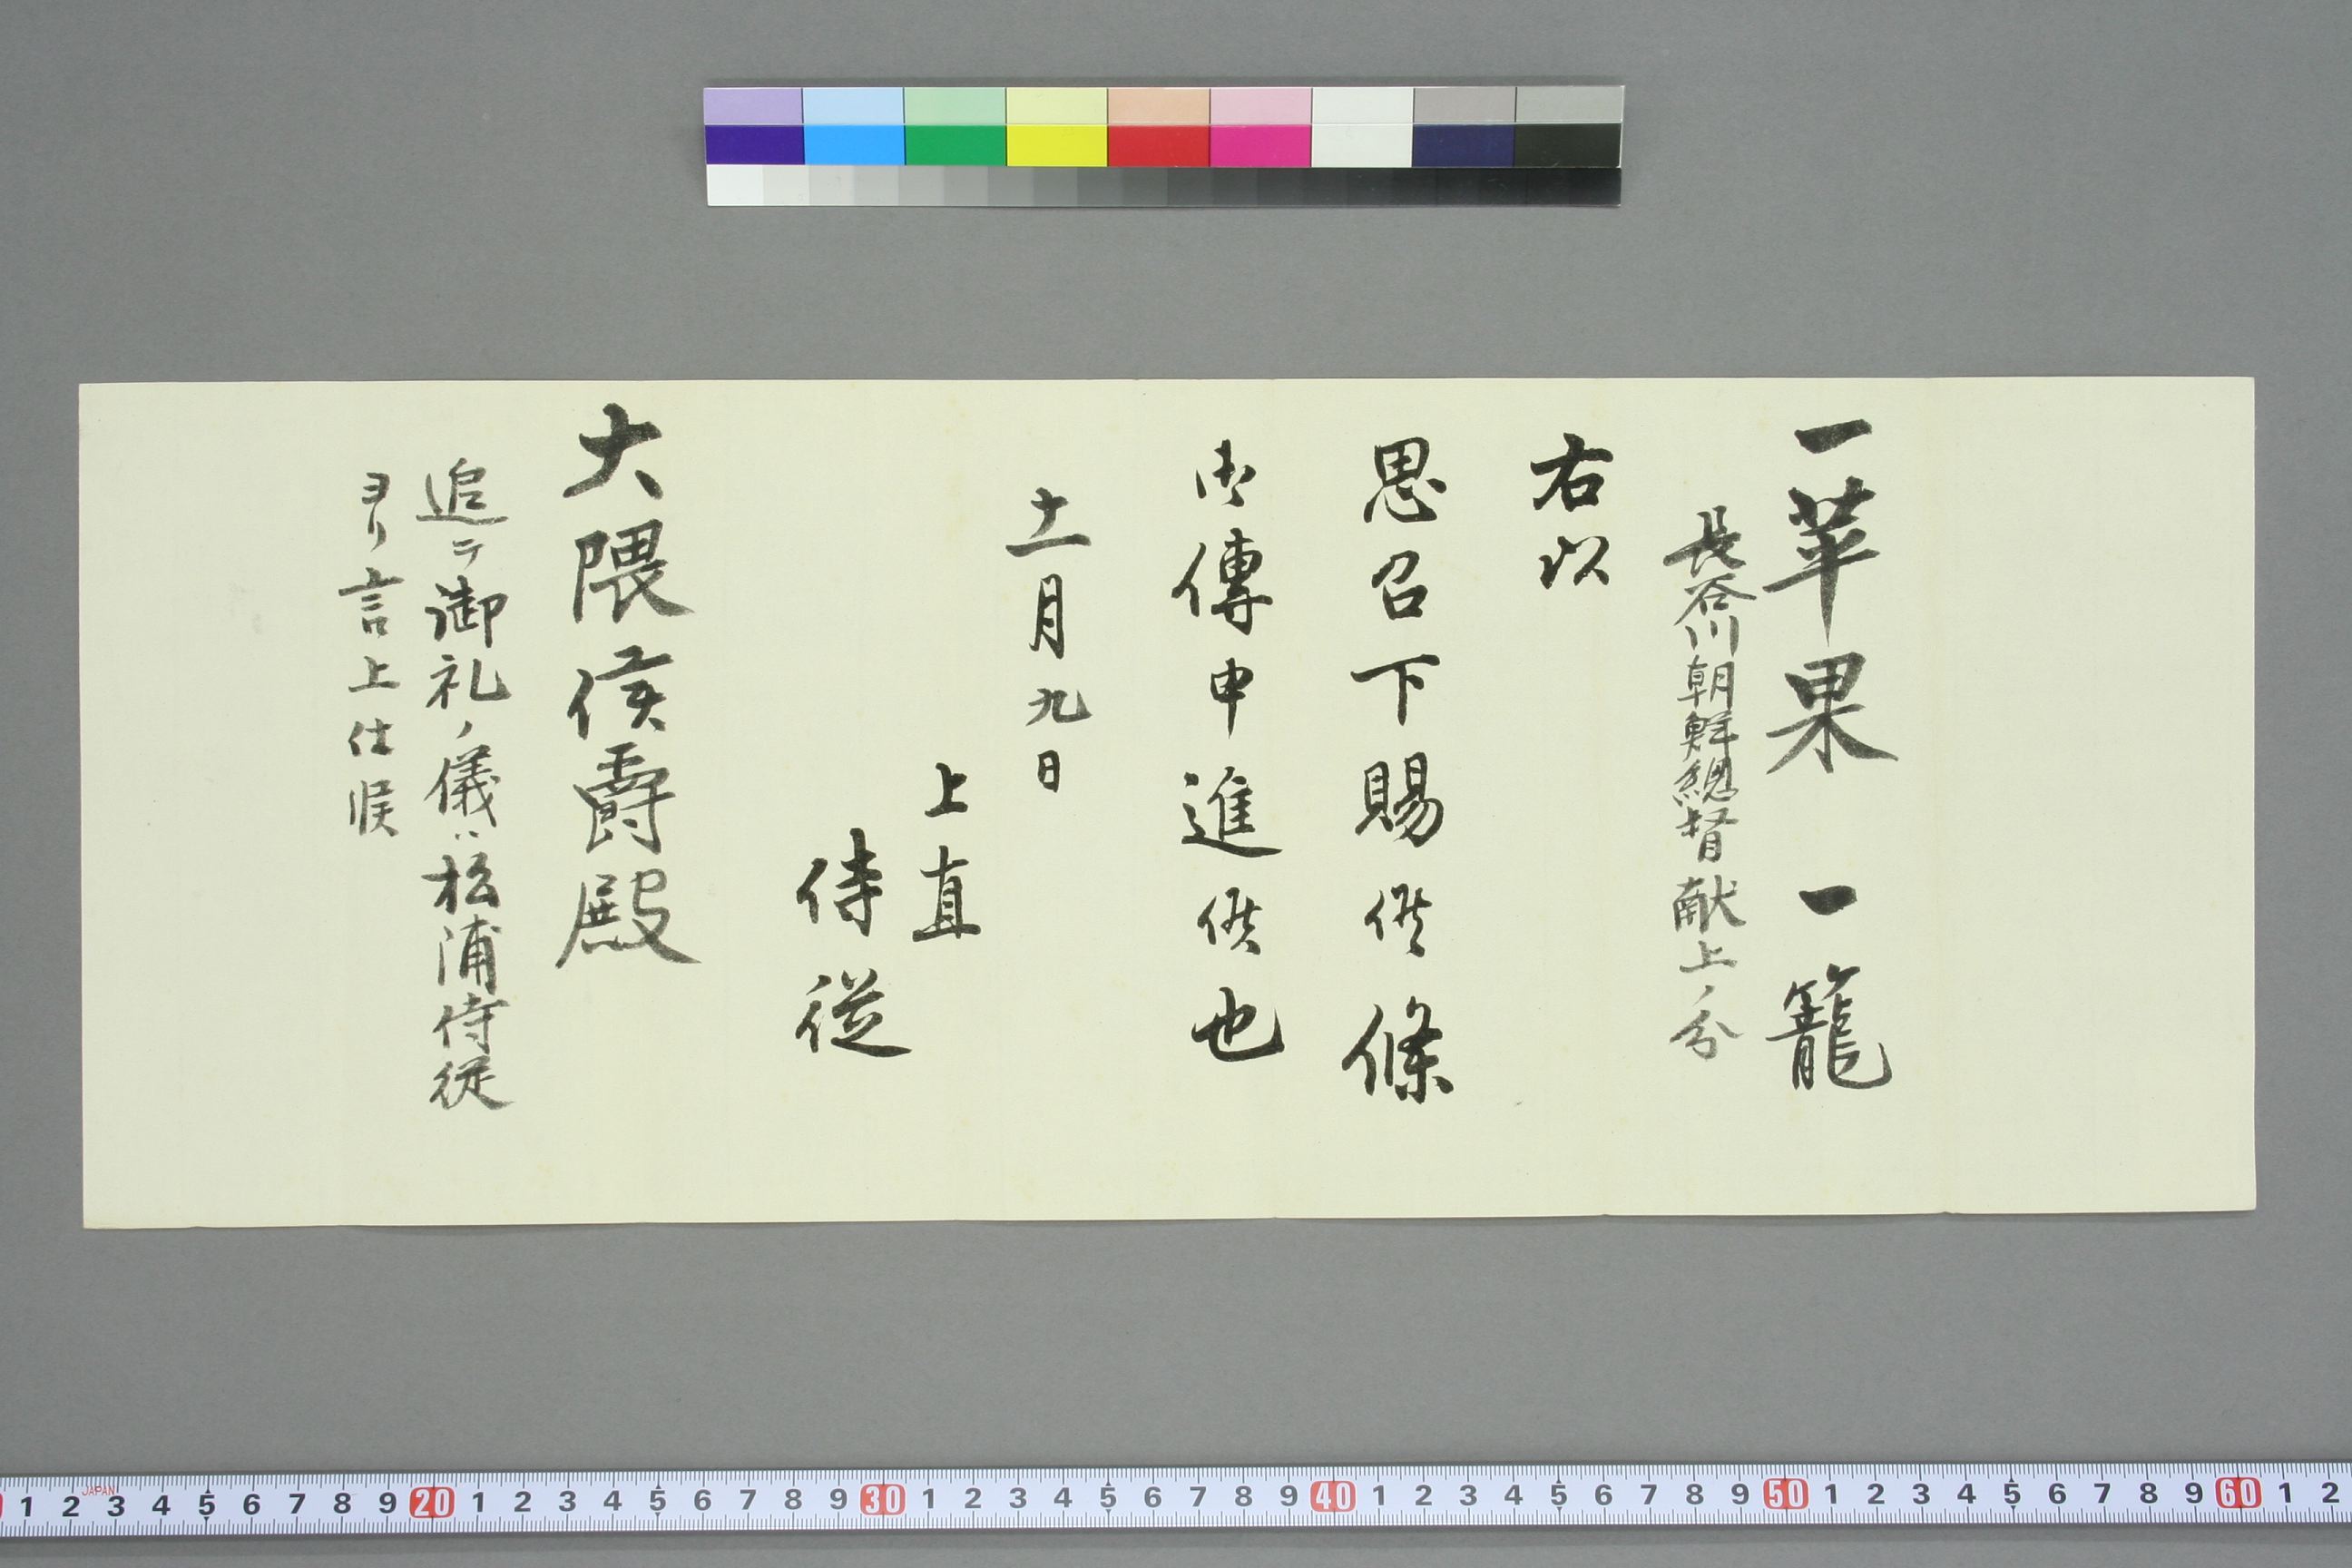 一 苹果 一籠
長谷川朝鮮總督献上ノ分
右以
思召下賜候條
御傳申進候也
十一月九日
上直
侍從
大隈侯爵殿
追テ御礼ノ儀ハ松浦侍従
ヨリ言上仕候
1 2 3 4 5 6 7 8 9 20 1 2 3 4 5 6 7 8 9 30 1 2 3 4 5 6 7 8 9 40 1 2 3 4 5 6 7 8 9 50 1 2 3 4 5 6 7 8 9 60 1 2
JAPAN